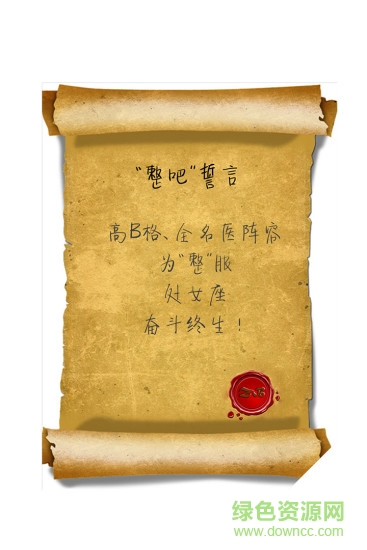 “整吧”誓言
高B格、全名医阵容
为“整”服
处女座
奋斗终生！
绿色资源网
www.downcc.com